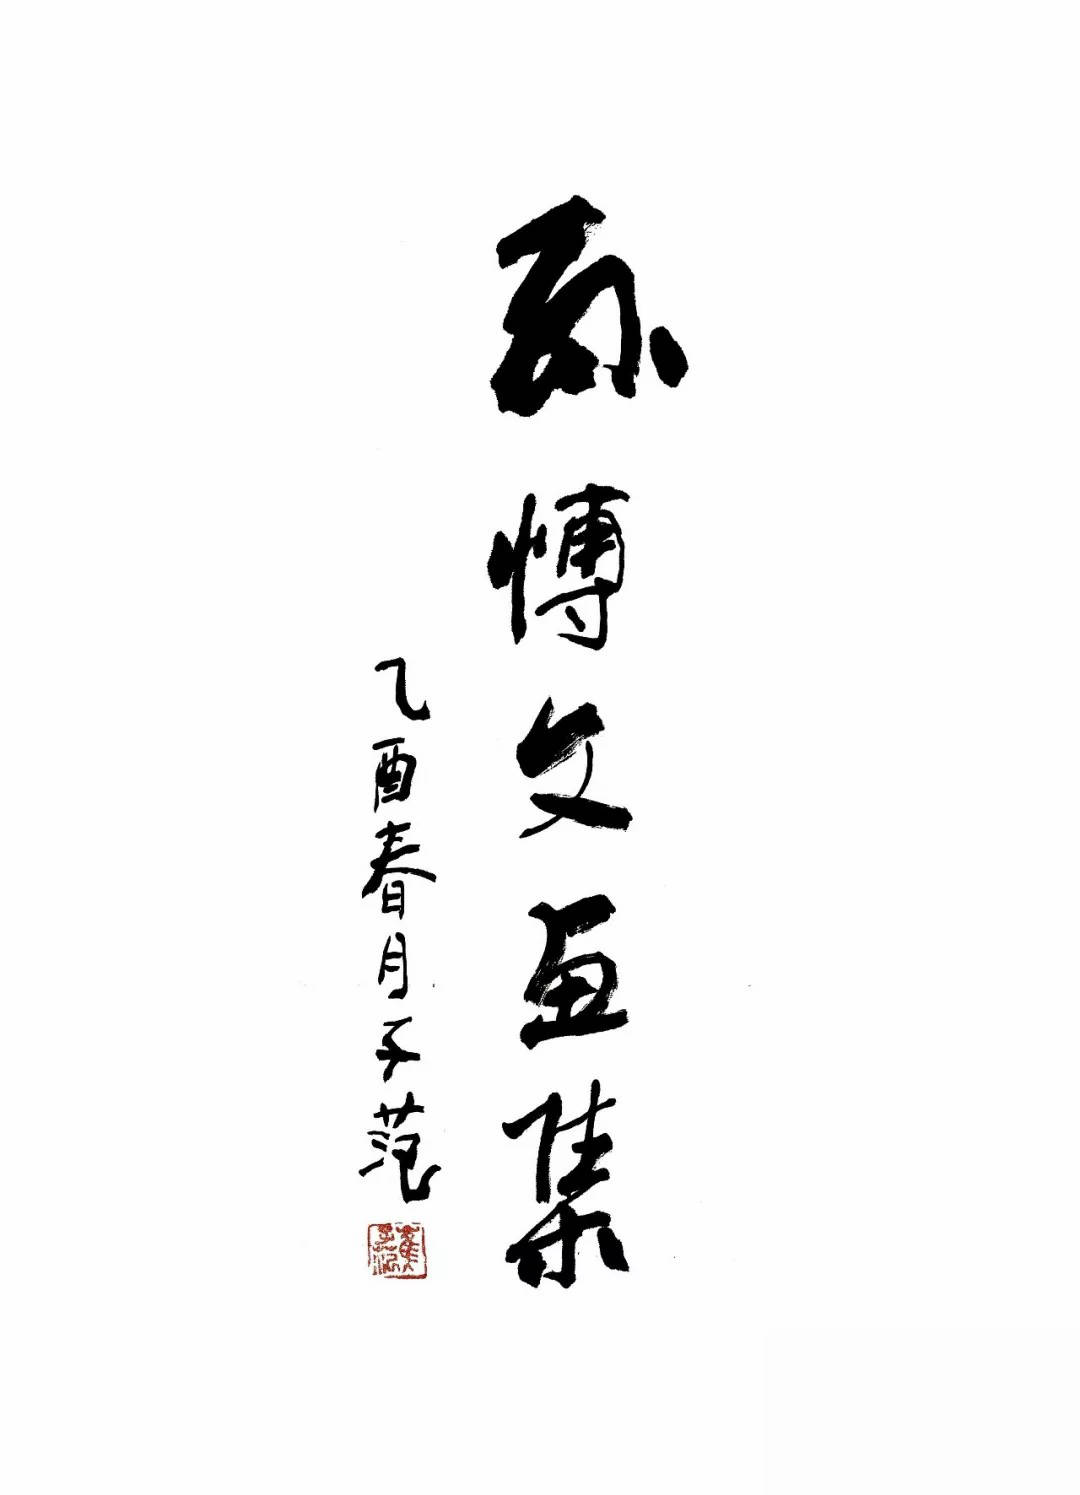 孙博文画集
乙酉春月子范